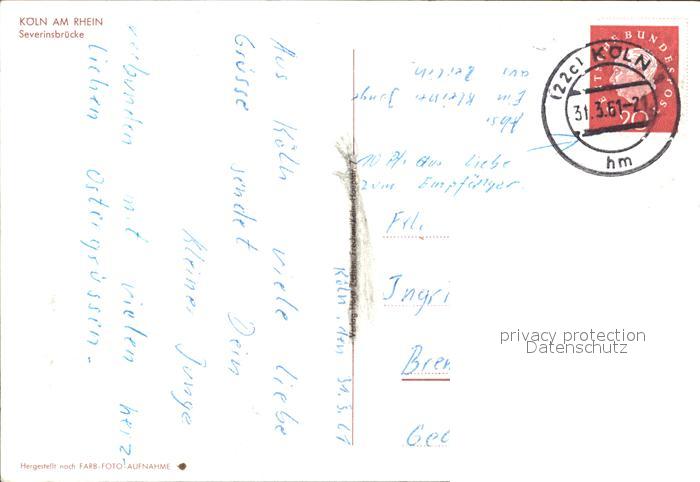 KÖLN AM RHEIN
Severinsbrücke
Köln, den 31.3.61
Aus Köln viele liebe
Grüsse sendet Dein
kleiner Junge
verbunden mit vielen herz-
lichen Ostergrüssen.
Hergestellt nach FARB-FOTO-AUFNAHME
Abs.
Ein kleiner Junge
aus Berlin
10 Pf. aus Liebe
zum Empfänger.
Frl.
Ingri
Brem
DEUTSCHE BUNDESPOST
20
(22c) KÖLN
31.3.61-21
hm
privacy protection
Datenschutz